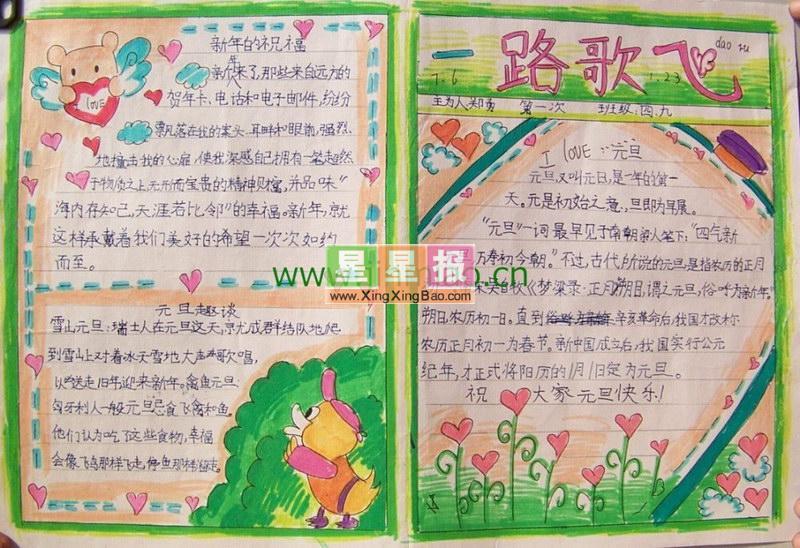 新年的祝福
新年来了,那些来自远方的
贺年卡、电话和电子邮件,纷纷
飘落在我的案头、耳畔和眼前,强烈
地撞击我的心扉,使我深感自己拥有一笔超然
于物质之上无形而宝贵的精神财富,并品味"
海内存知己,天涯若比邻"的幸福。新年,就
这样承载着我们美好的希望一次次如约
而至。
love
元旦趣谈
雪山元旦:瑞士人在元旦这天,成群结队地爬
到雪山上对着冰天雪地大声歌唱,
以送走旧年迎来新年。禽鱼元旦:
匈牙利人一般元旦忌食飞禽和鱼。
他们认为吃了这些食物,幸福
会像飞鸟那样飞走,像鱼那样溜走。
一路歌飞
1.6
1.23
第一次
班级:四、九
I love 元旦
元旦又叫元日,是一年的第一
天。元是初始之意,旦即为早晨。
"元旦"一词最早见于南朝梁人笔下:"四气新
元旦,万寿初今朝。"不过,古代所说的元旦,是指农历的正月
《梦梁录·正月》:"朔日,谓之元旦,俗呼为新年。"
朔日,农历初一日。直到辛亥革命后,我国才改称
农历正月初一为春节。新中国成立后,我国实行公元
纪年,才正式将阳历的1月1日定为元旦。
祝 大家 元旦快乐!
星星报
www.XingXingBao.com